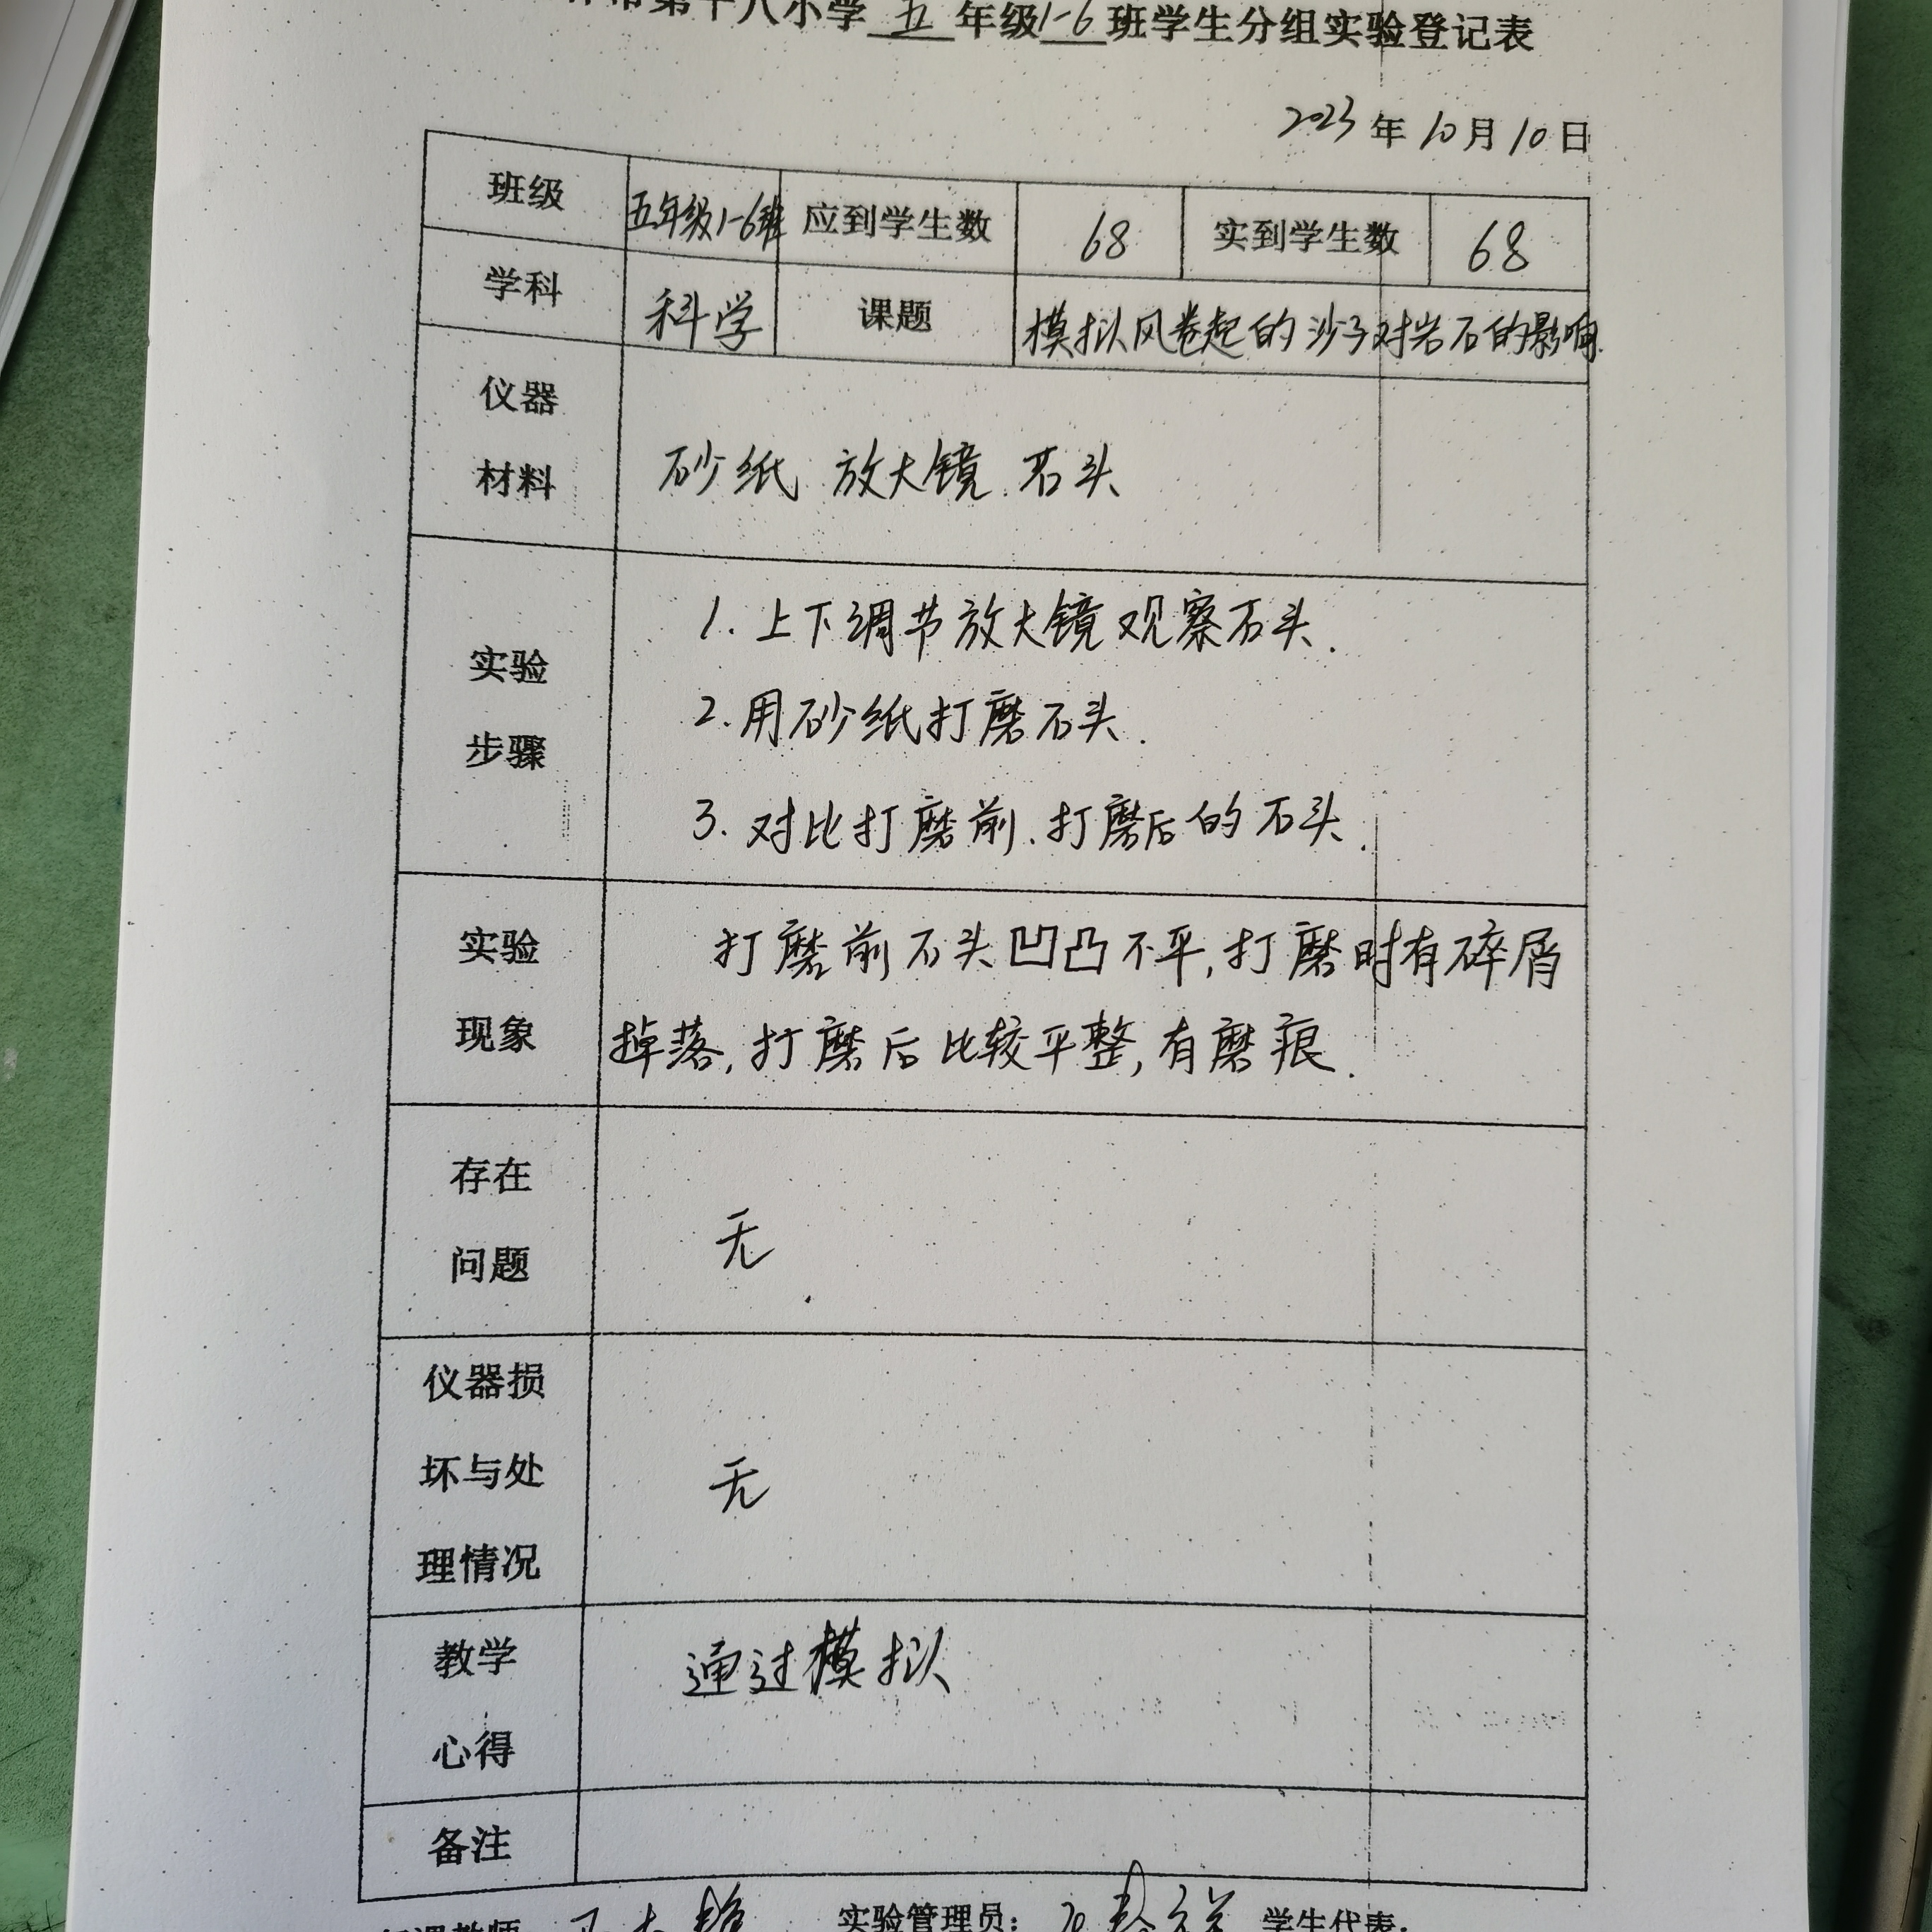 市第十八小学五年级1-6班学生分组实验登记表
2023年10月10日
班级 五年级1-6班 应到学生数 68 实到学生数 68
学科 科学 课题 模拟风卷起的沙子对岩石的影响.
仪器
材料
砂纸 放大镜 石头
实验
步骤
1. 上下调节放大镜观察石头.
2. 用砂纸打磨石头.
3. 对比打磨前、打磨后的石头.
实验
现象
打磨前石头凹凸不平,打磨时有碎屑
掉落,打磨后比较平整,有磨痕.
存在
问题
无
仪器损
坏与处
理情况
无
教学
心得
通过模拟
备注
实验管理员: 学生代表: